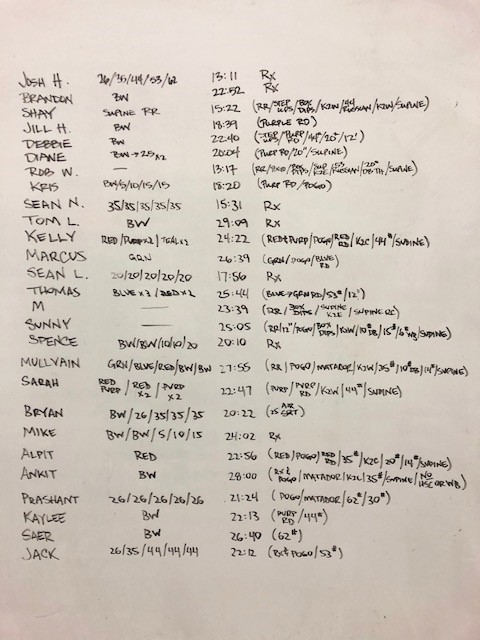 JOSH H. 26/35/44/53/62 13:11 Rx
BRANDON BW 22:52 Rx
SHAY SUPINE RR 15:22 (RR/STEP UPS/BOX DIPS/K2W/44 RUSSIAN/K2W/SUPINE)
JILL H. BW 18:39 (PURPLE RD)
DEBBIE BW 22:40 (STEP UPS/PURP RD/44#/20"/12')
DIANE BW→25x2 20:04 (PURP RD/20"/SUPINE)
ROB W. — 13:17
KRIS BW/5/10/15/15 18:20 (PURP RD/POGO)
SEAN N. 35/35/35/35/35 15:31 Rx
TOM L. BW 29:09 Rx
KELLY RED/PURPx2/TEALx2 24:22 (RED&PURP/POGO/RED RD/K2C/44#/SUPINE)
MARCUS GRN 26:39 (GRN/POGO/BLUE RD)
SEAN L. 20/20/20/20/20 17:56 Rx
THOMAS BLUE x3/RED x2 25:44 (BLUE→GRN RD/53#/12')
M — 23:39 (RR/BOX DIPS/SUPINE K2E/SUPINE RR)
SUNNY — 25:05
SPENCE BW/BW/10/10/20 20:10 Rx
MULLVAIN GRN/BLUE/RED/BW/BW 27:55 (RR/POGO/MATADOR/K2W/35#/10#DB/14#/SUPINE)
SARAH RED PURP/RED x2/PURP x2 22:47 (PURP/PURP RD/K2W/44#/SUPINE)
BRYAN BW/26/35/35/35 20:22 (25 AIR SRT)
MIKE BW/BW/5/10/15 24:02 Rx
ALPIT RED 22:56 (RED/POGO/RED RD/35#/K2C/20#/14#/SUPINE)
ANKIT BW 28:00 (Rx & POGO/MATADOR/K2C/35#/SUPINE/NO HSC OR WB)
PRASHANT 26/26/26/26/26 21:24 (POGO/MATADOR/62#/30#)
KAYLEE BW 22:13 (PURP RD/44#)
SAER BW 26:40 (62#)
JACK 26/35/44/44/44 22:12 (Rx & POGO/53#)